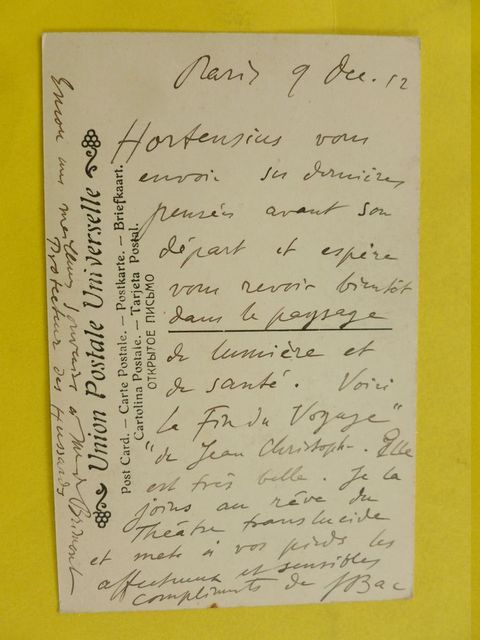 Paris 9 Dec. 12
Hortensius vous
envoie ses dernières
pensées avant son
départ et espère
vous revoir bientôt
dans le paysage
de lumière et
de santé. Voici
"la Fin du Voyage"
de Jean Christoph. Elle
est très belle. Je la
joins au rêve du
Théâtre translucide
et mets à vos pieds les
affectueux et sensibles
compliments de FBac
Union Postale Universelle
Post Card. – Carte Postale. – Postkarte. – Briefkaart.
Cartolina Postale. – Tarjeta Postal.
ОТКРЫТОЕ ПИСЬМО
mes meilleurs souvenirs à Mme de Brimont
Protecteur des Hussards